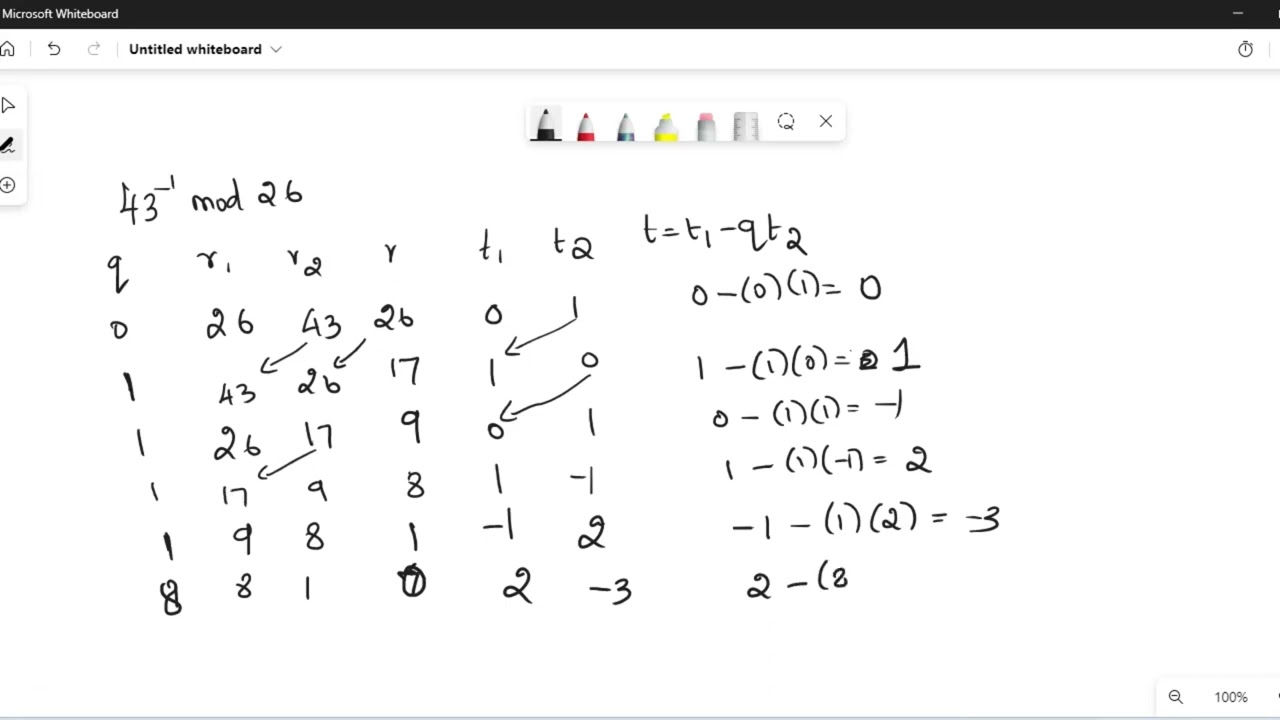 Microsoft Whiteboard
Untitled whiteboard
43⁻¹ mod 26
q r₁ r₂ r t₁ t₂ t=t₁-qt₂
0 26 43 26 0 1 0-(0)(1)= 0
1 43 26 17 1 0 1-(1)(0)= 1
1 26 17 9 0 1 0-(1)(1)= -1
1 17 9 8 1 -1 1-(1)(-1)= 2
1 9 8 1 -1 2 -1-(1)(2)= -3
8 8 1 2 -3 2-(8
100%